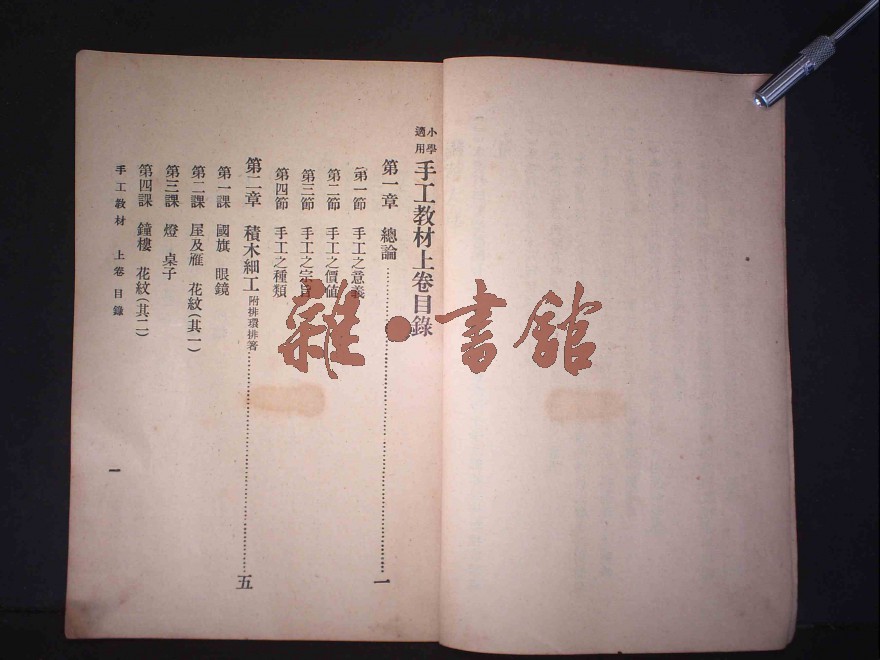 小學適用 手工教材上卷目錄
第一章 總論……一
第一節 手工之意義
第二節 手工之價値
第三節 手工之宗旨
第四節 手工之種類
第二章 積木細工 附排環排箸……五
第一課 國旗 眼鏡
第二課 屋及雁 花紋(其一)
第三課 燈 桌子
第四課 鐘樓 花紋(其二)
手工教材 上卷 目錄
一
雜·書館